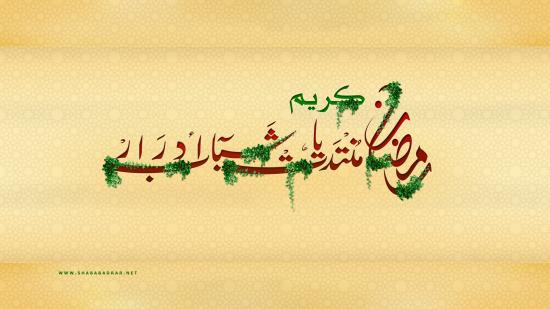 رمضان كريم
منتديات شباب أدرار
WWW.SHABABADRAR.NET